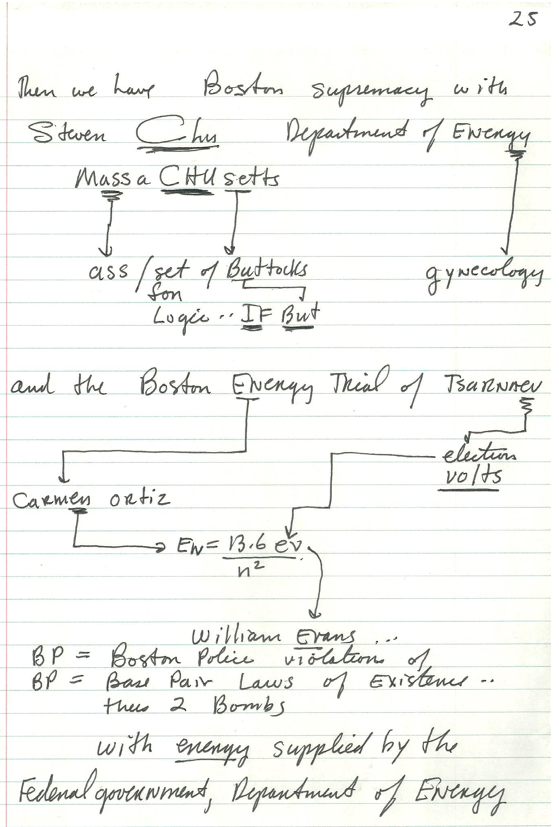 25
Then we have Boston supremacy with
Steven Chu Department of Energy
Mass a CHU setts
ass / set of Buttocks gynecology
for
Logic .. IF But
and the Boston ENergy Trial of TSARNAEV
election
volts
Carmen ORtiz
EN = 13.6 ev
n²
William Evans ...
BP = Boston Police violations of
BP = Base Pair Laws of Existence ..
thus 2 Bombs
with energy supplied by the
Federal government, Department of Energy